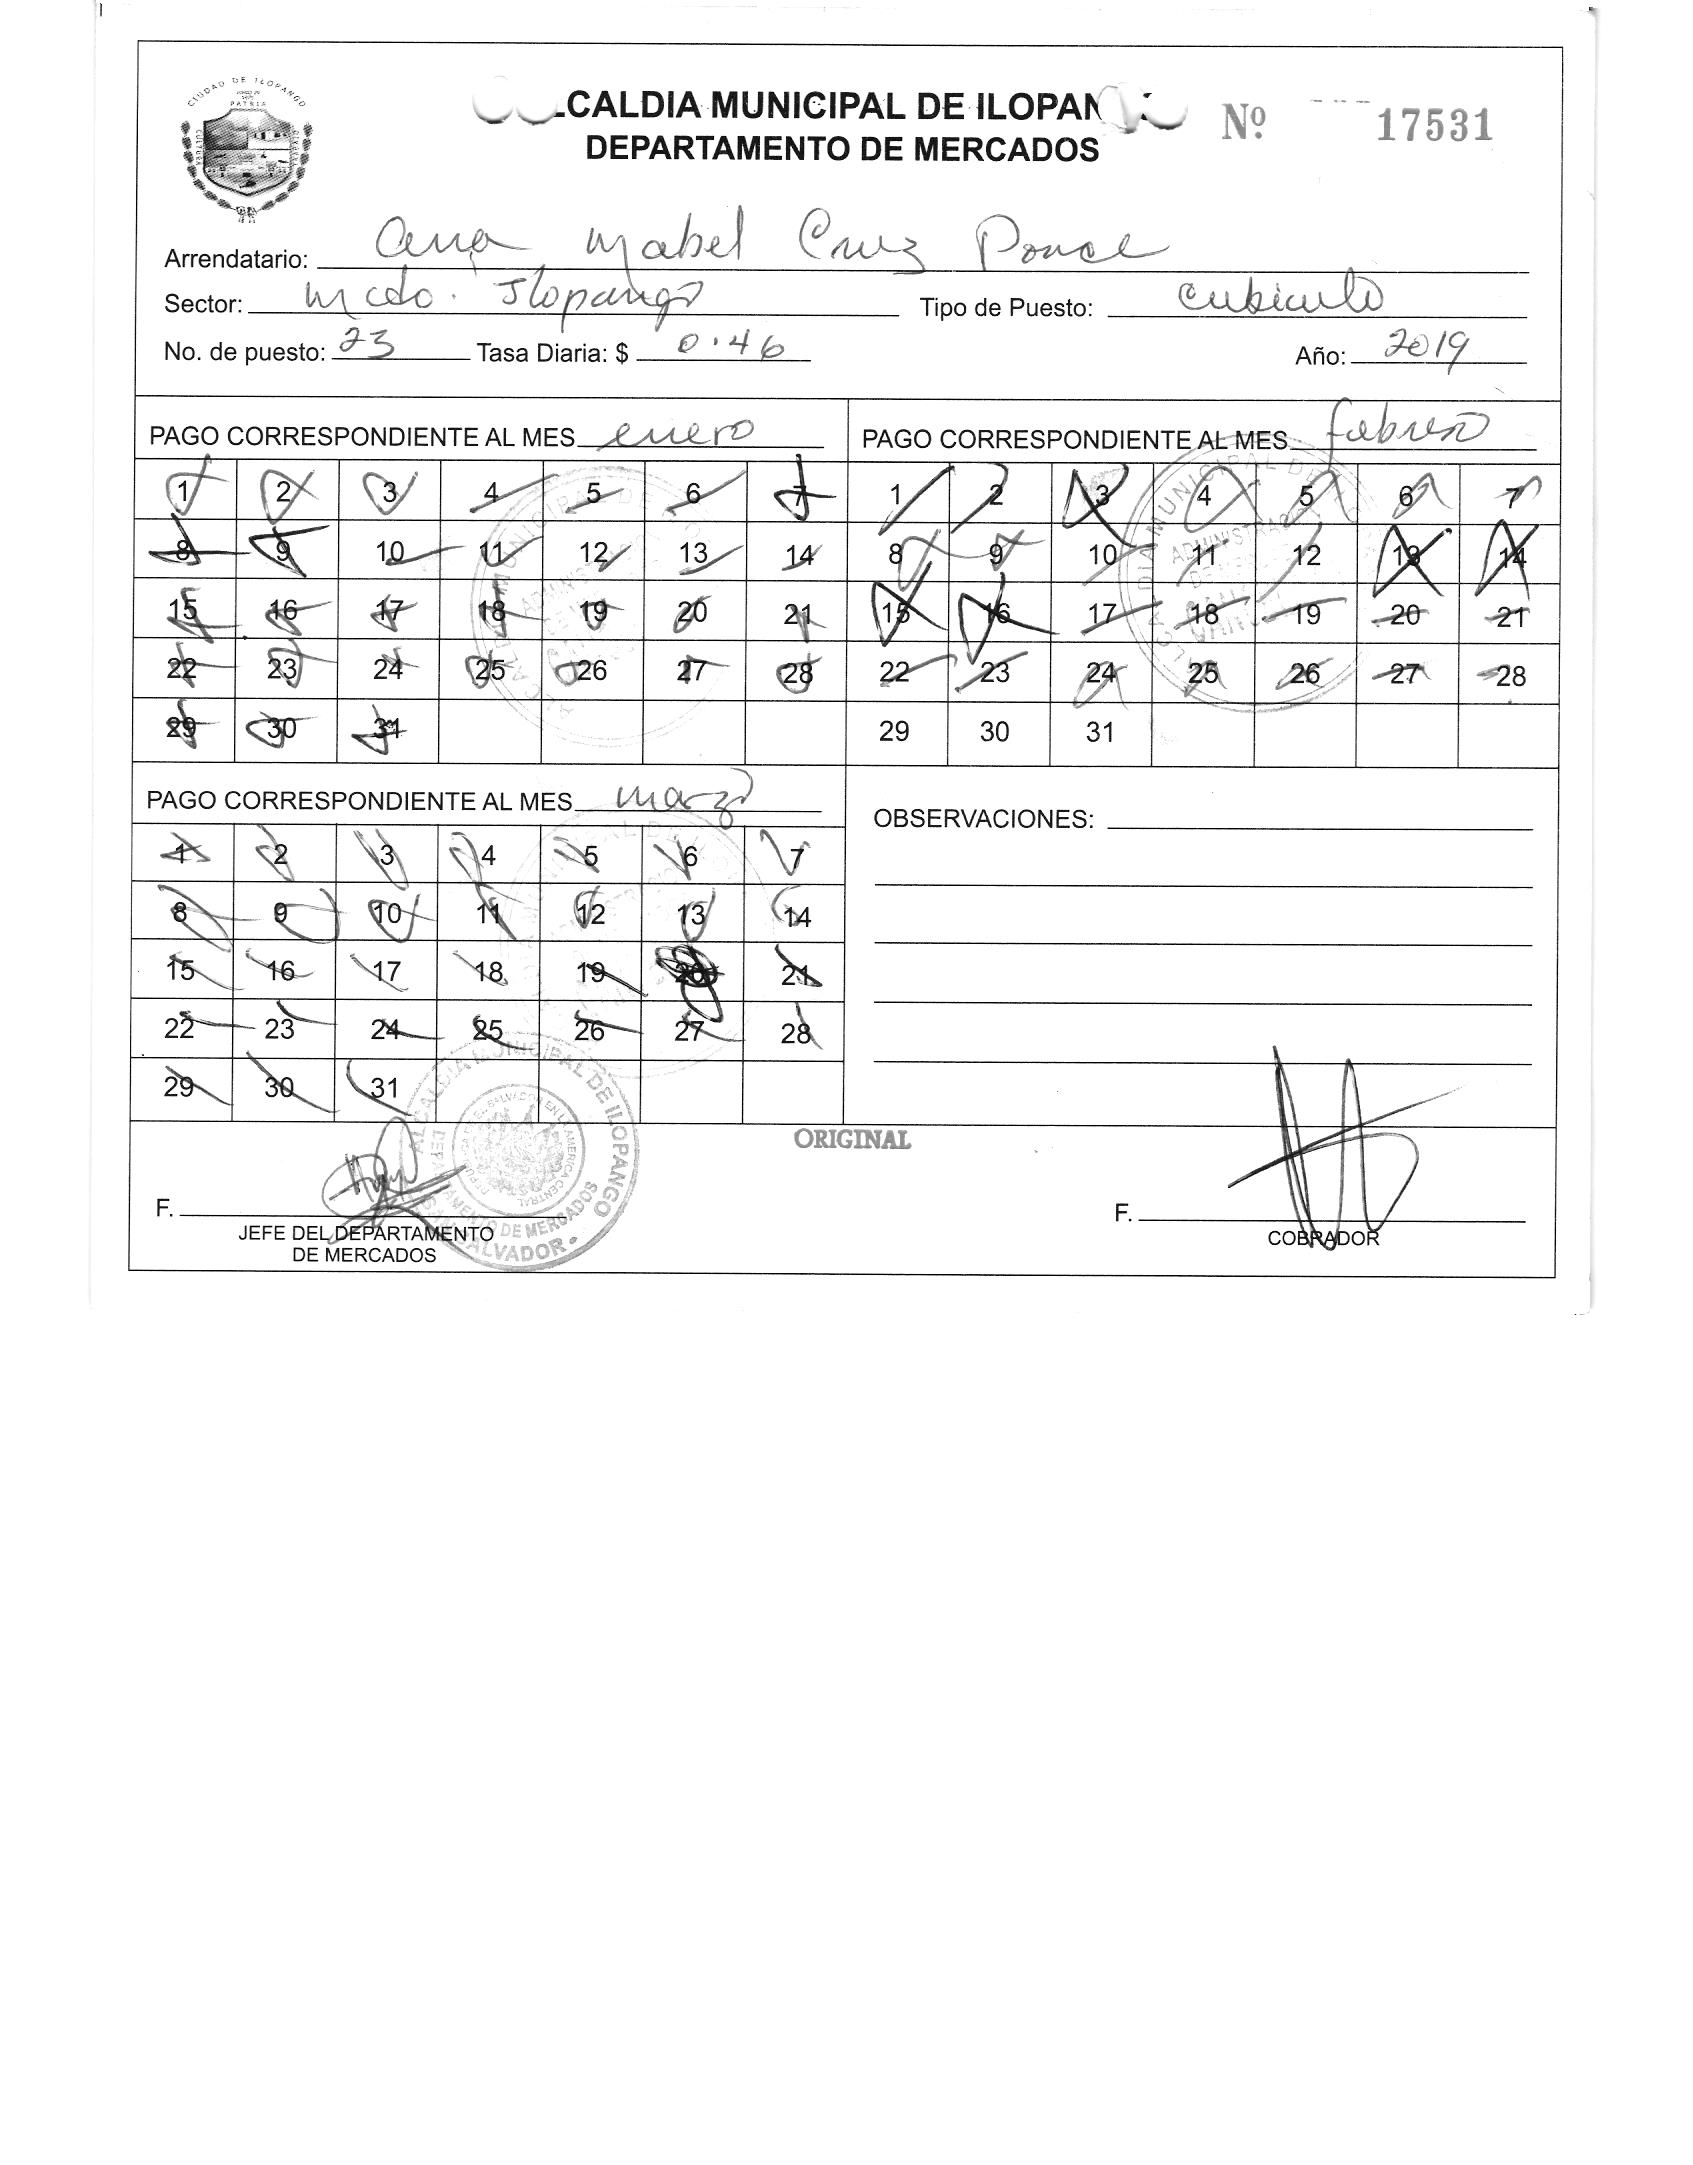 CIUDAD DE ILOPANGO
PATRIA
CULTURA
CALDIA MUNICIPAL DE ILOPAN
Nº 17531
DEPARTAMENTO DE MERCADOS
Arrendatario: Ana Mabel Cruz Ponce
Sector: Mcdo. Ilopango Tipo de Puesto: Cubiculo
No. de puesto: 23 Tasa Diaria: $ 0.46 Año: 2019
PAGO CORRESPONDIENTE AL MES enero
1 2 3 4 5 6 7
8 9 10 11 12 13 14
15 16 17 18 19 20 21
22 23 24 25 26 27 28
29 30 31
PAGO CORRESPONDIENTE AL MES febrero
1 2 3 4 5 6 7
8 9 10 11 12 13 14
15 16 17 18 19 20 21
22 23 24 25 26 27 28
29 30 31
PAGO CORRESPONDIENTE AL MES marzo
1 2 3 4 5 6 7
8 9 10 11 12 13 14
15 16 17 18 19 20 21
22 23 24 25 26 27 28
29 30 31
OBSERVACIONES:
ORIGINAL
F.
JEFE DEL DEPARTAMENTO
DE MERCADOS
ALCALDIA MUNICIPAL DE ILOPANGO
DEPARTAMENTO DE MERCADOS
SAN SALVADOR
F.
COBRADOR